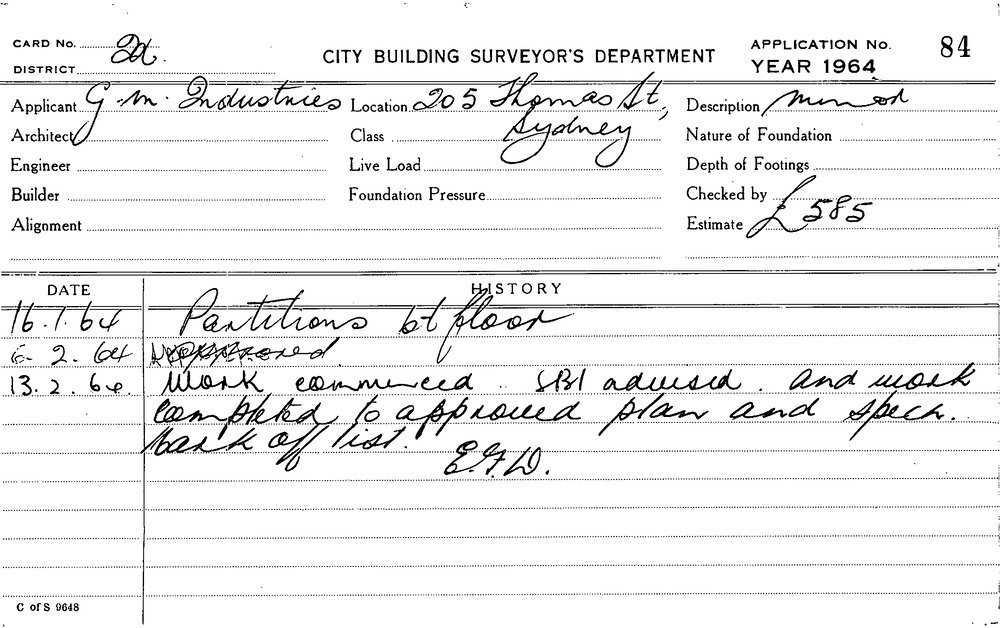 CARD No. 2d. CITY BUILDING SURVEYOR'S DEPARTMENT APPLICATION No. 84
DISTRICT YEAR 1964
Applicant G.M. Industries Location 205 Thomas St, Description Minor
Architect Class Sydney Nature of Foundation
Engineer Live Load Depth of Footings
Builder Foundation Pressure Checked by
Alignment Estimate £585
DATE HISTORY
16.1.64 Partitions 6t floor
6.2.64 Approved
13.2.64. Work commenced. SBI advised. And work
completed to approved plan and specn.
Mark off list. E.F.D.
C of S 9648